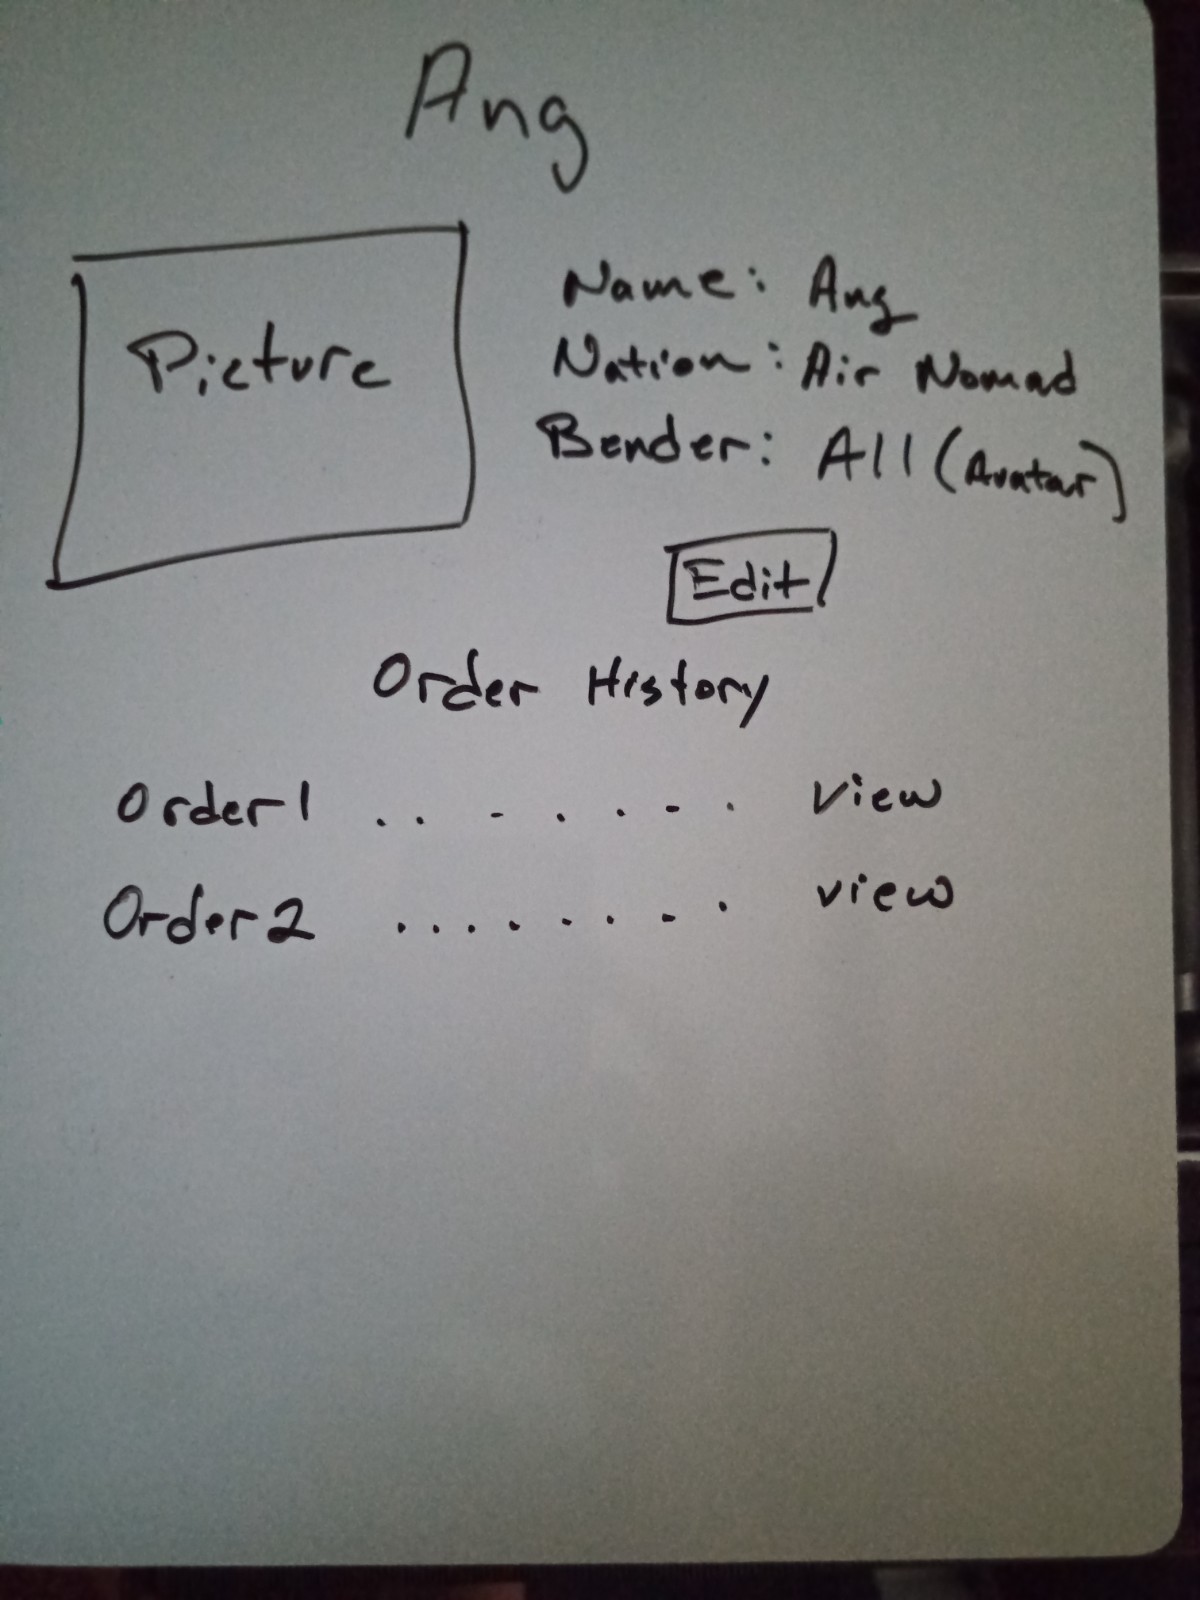 Ang
Picture
Name: Ang
Nation: Air Nomad
Bender: All (Avatar)
Edit
Order History
Order 1 . . - . . - . View
Order 2 . . . . . . - . view